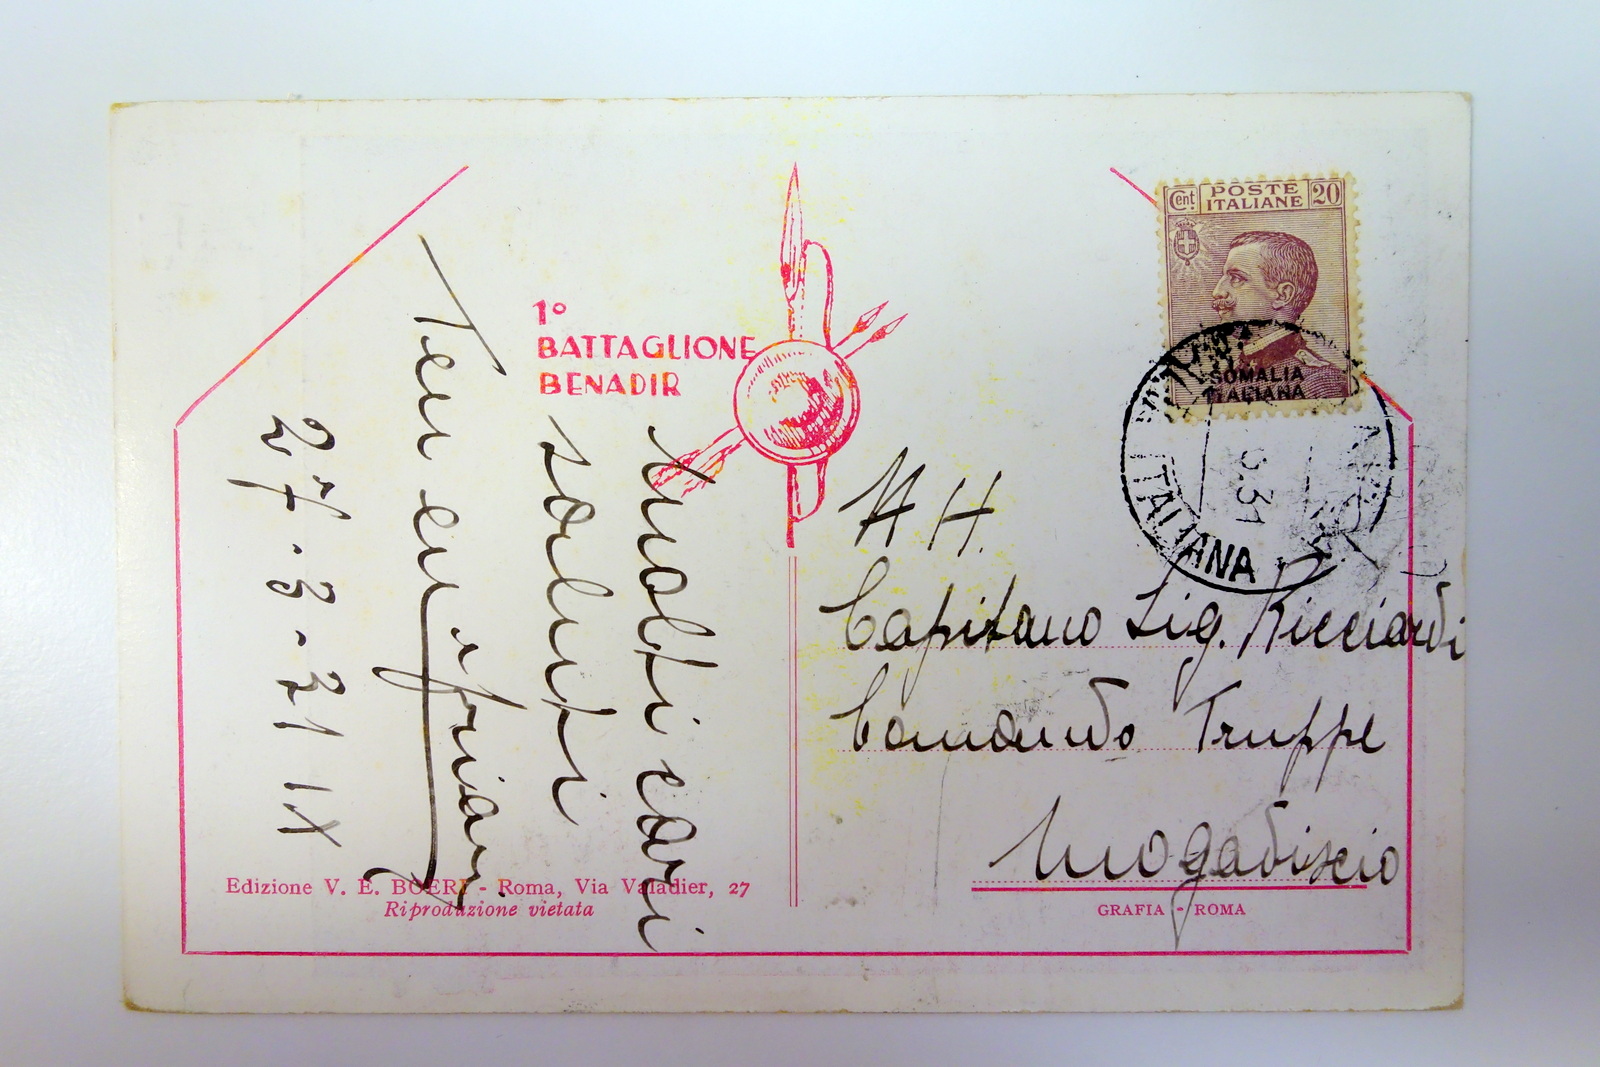 1º
BATTAGLIONE
BENADIR
Molti cari
saluti
Ten
27-3-31 IX
Cent POSTE ITALIANE 20
SOMALIA
ITALIANA
ITALIANA
Capitano Sig. Ricciardi
Comando Truppe
Mogadiscio
Edizione V. E. BOERI - Roma, Via Valadier, 27
Riproduzione vietata
GRAFIA - ROMA